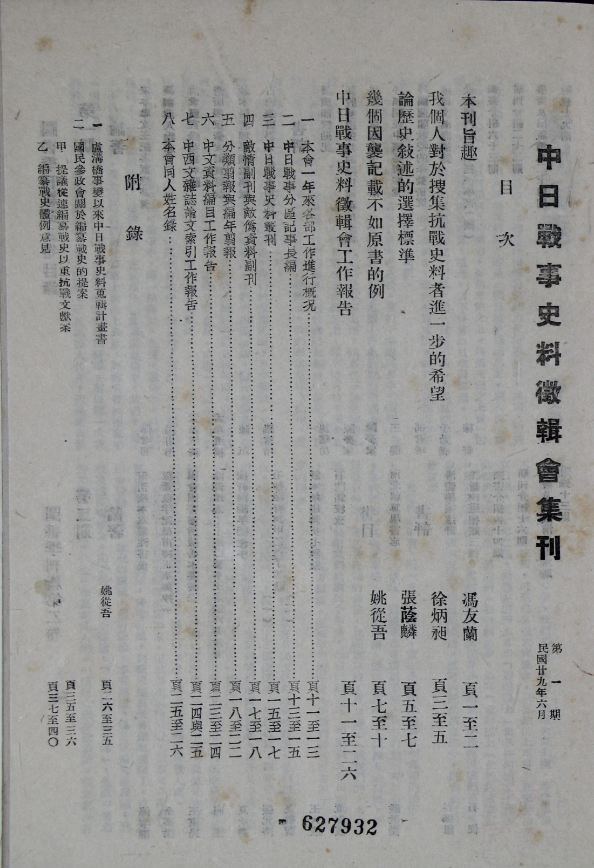 中日戰事史料徵輯會集刊
第一期
民國廿九年六月
目次
本刊旨趣 馮友蘭 頁一至二
我個人對於搜集抗戰史料者進一步的希望 徐炳昶 頁三至五
論歷史敘述的選擇標準 張蔭麟 頁五至七
幾個因襲記載不如原書的例 姚從吾 頁七至十
中日戰事史料徵輯會工作報告 頁十一至二六
一 本會一年來各部工作進行概況 頁十一至一三
二 中日戰事分區記事長編 頁十三至一五
三 中日戰事史料叢刊 頁一五至一七
四 敵情副刊與敵偽資料副刊 頁一七至一八
五 分類剪報與編年剪報 頁一八至二二
六 中文資料編目工作報告 頁二三至二四
七 中西文雜誌論文索引工作報告 頁二四與二五
八 本會同人姓名錄 頁二五至二六
附錄
一 盧溝橋事變以來中日戰事史料蒐輯計畫書 姚從吾 頁二六至三五
二 國民參政會關於編纂戰史的提案
甲 提議從速編纂戰史以重抗戰文獻案 頁三五至三六
乙 編纂戰史體例意見 頁三七至四〇
627932